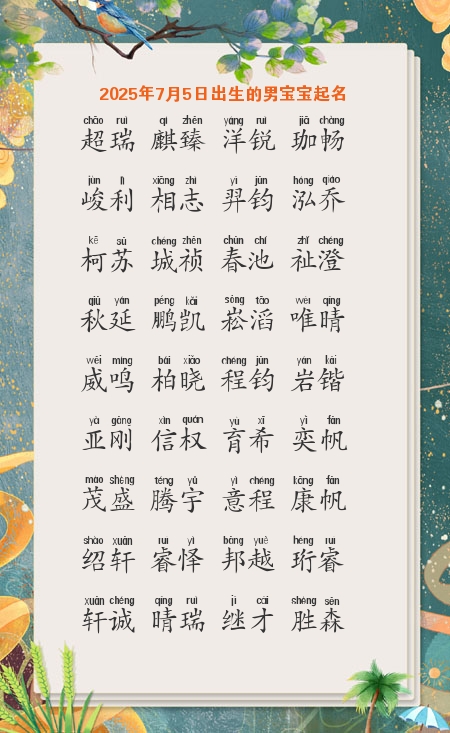 2025年7月5日出生的男宝宝起名
chāo ruì qí zhēn yáng ruì jiā chàng
超瑞 麒臻 洋锐 珈畅
jùn lì xiāng zhì yì jūn hóng qiáo
峻利 相志 羿钧 泓乔
kē sū chéng zhēn chūn chí zhǐ chéng
柯苏 城祯 春池 祉澄
qiū yán péng kǎi sōng tāo wéi qíng
秋延 鹏凯 崧滔 唯晴
wēi míng bǎi xiǎo chéng jūn yán kǎi
威鸣 柏晓 程钧 岩锴
yà gāng xìn quán yù xī yì fān
亚刚 信权 育希 奕帆
mào shèng téng yǔ yì chéng kāng fān
茂盛 腾宇 意程 康帆
shào xuān ruì yì bāng yuè héng ruì
绍轩 睿怿 邦越 珩睿
xuān chéng qíng ruì jì cái shèng sēn
轩诚 晴瑞 继才 胜森